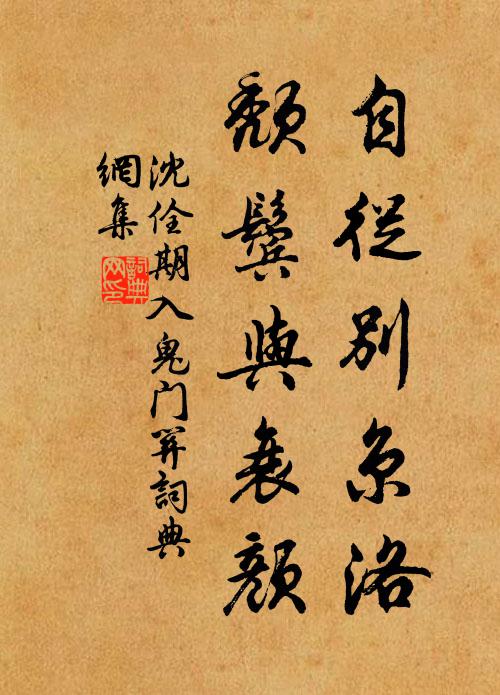 自從別京洛
頹鬢與衰顏
沈佺期入鬼門関詞典
網集
詞典
網印